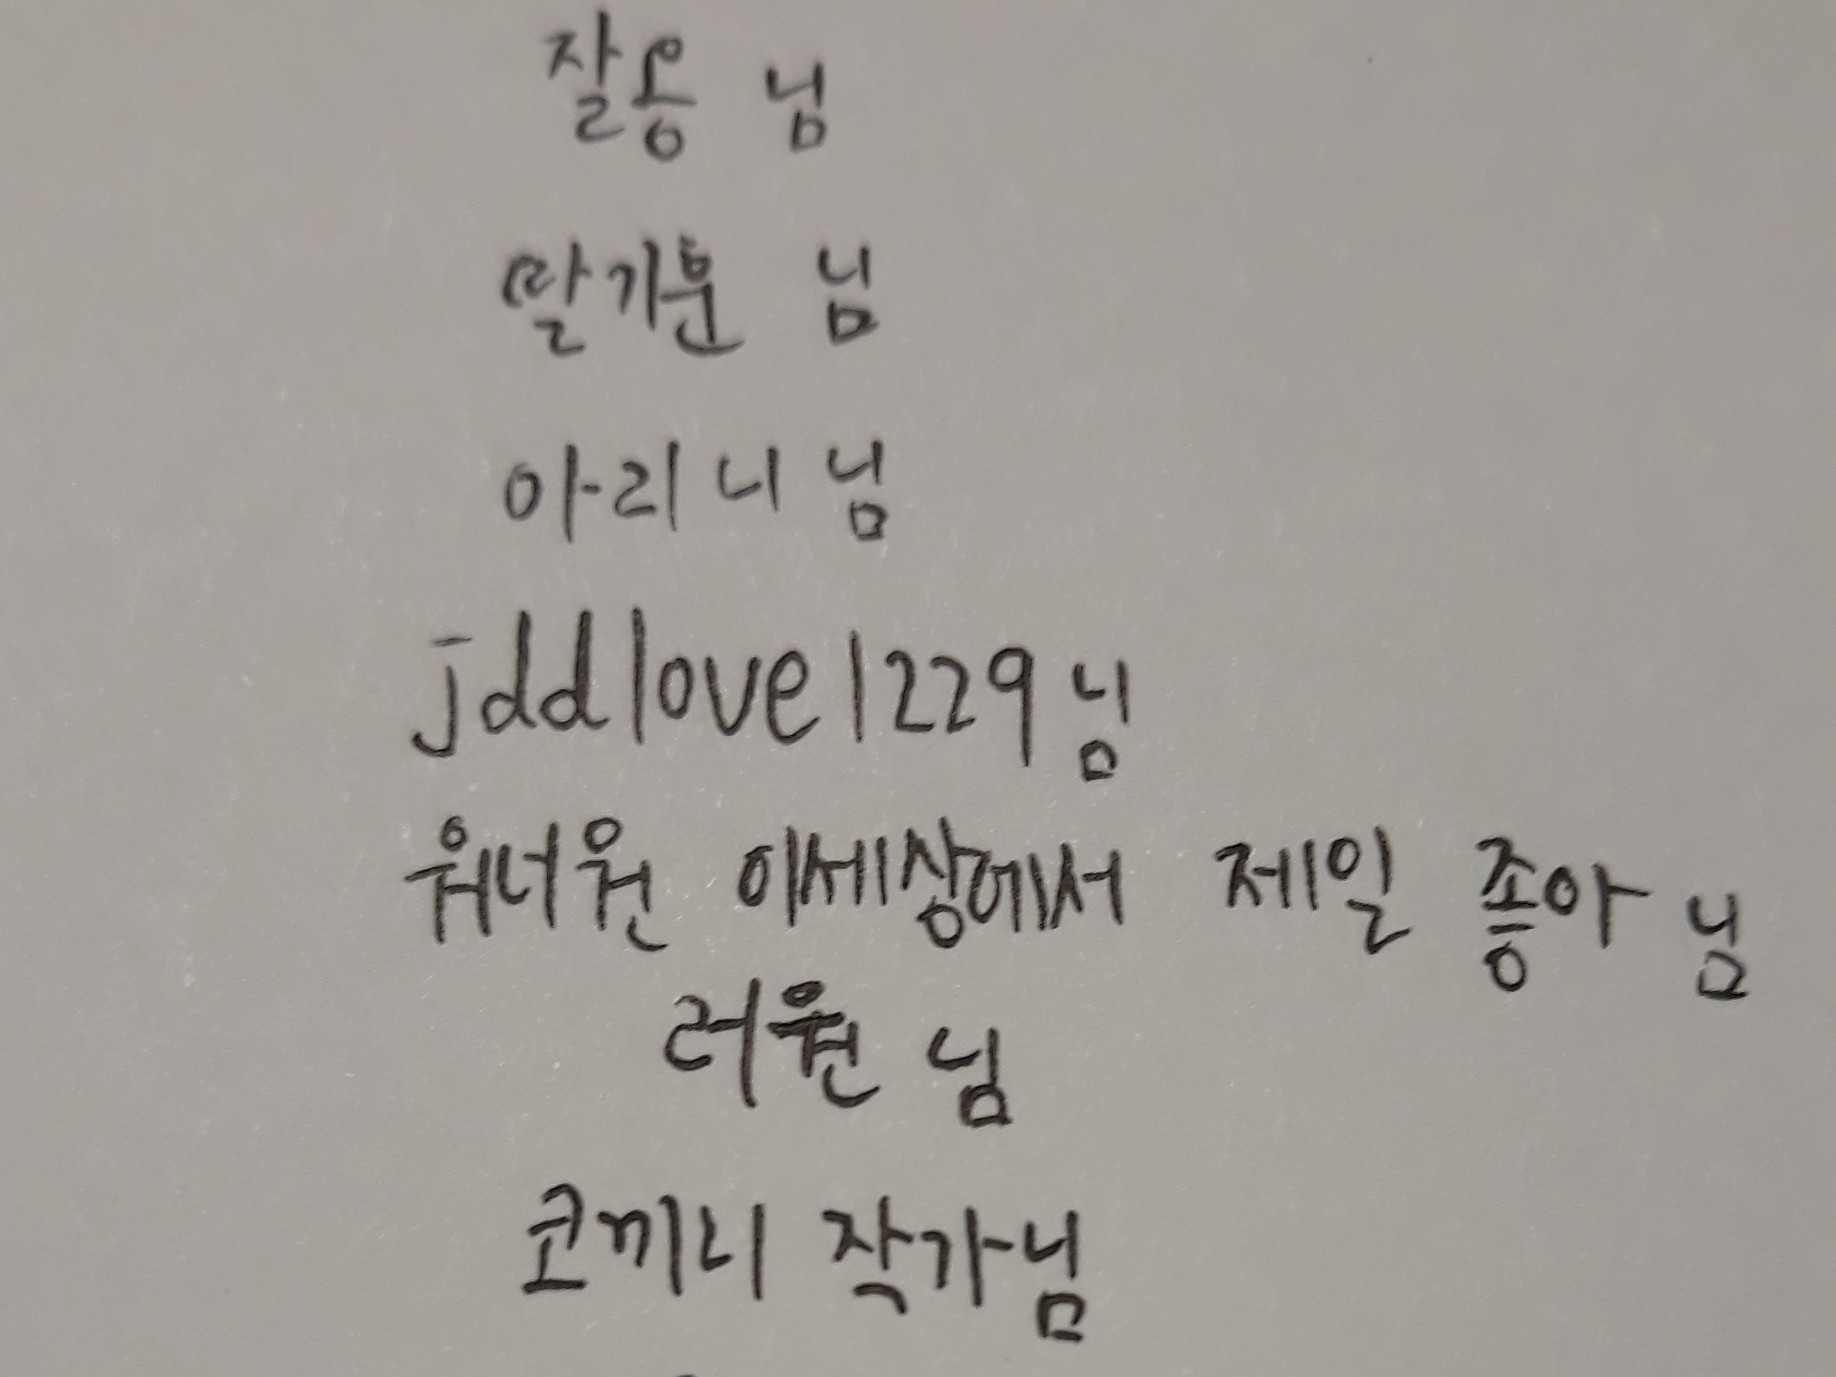 잘용 님
딸기훈 님
아리니님
jddlove1229님
워너원 이세상에서 제일 좋아 님
러원 님
코끼리 작가님